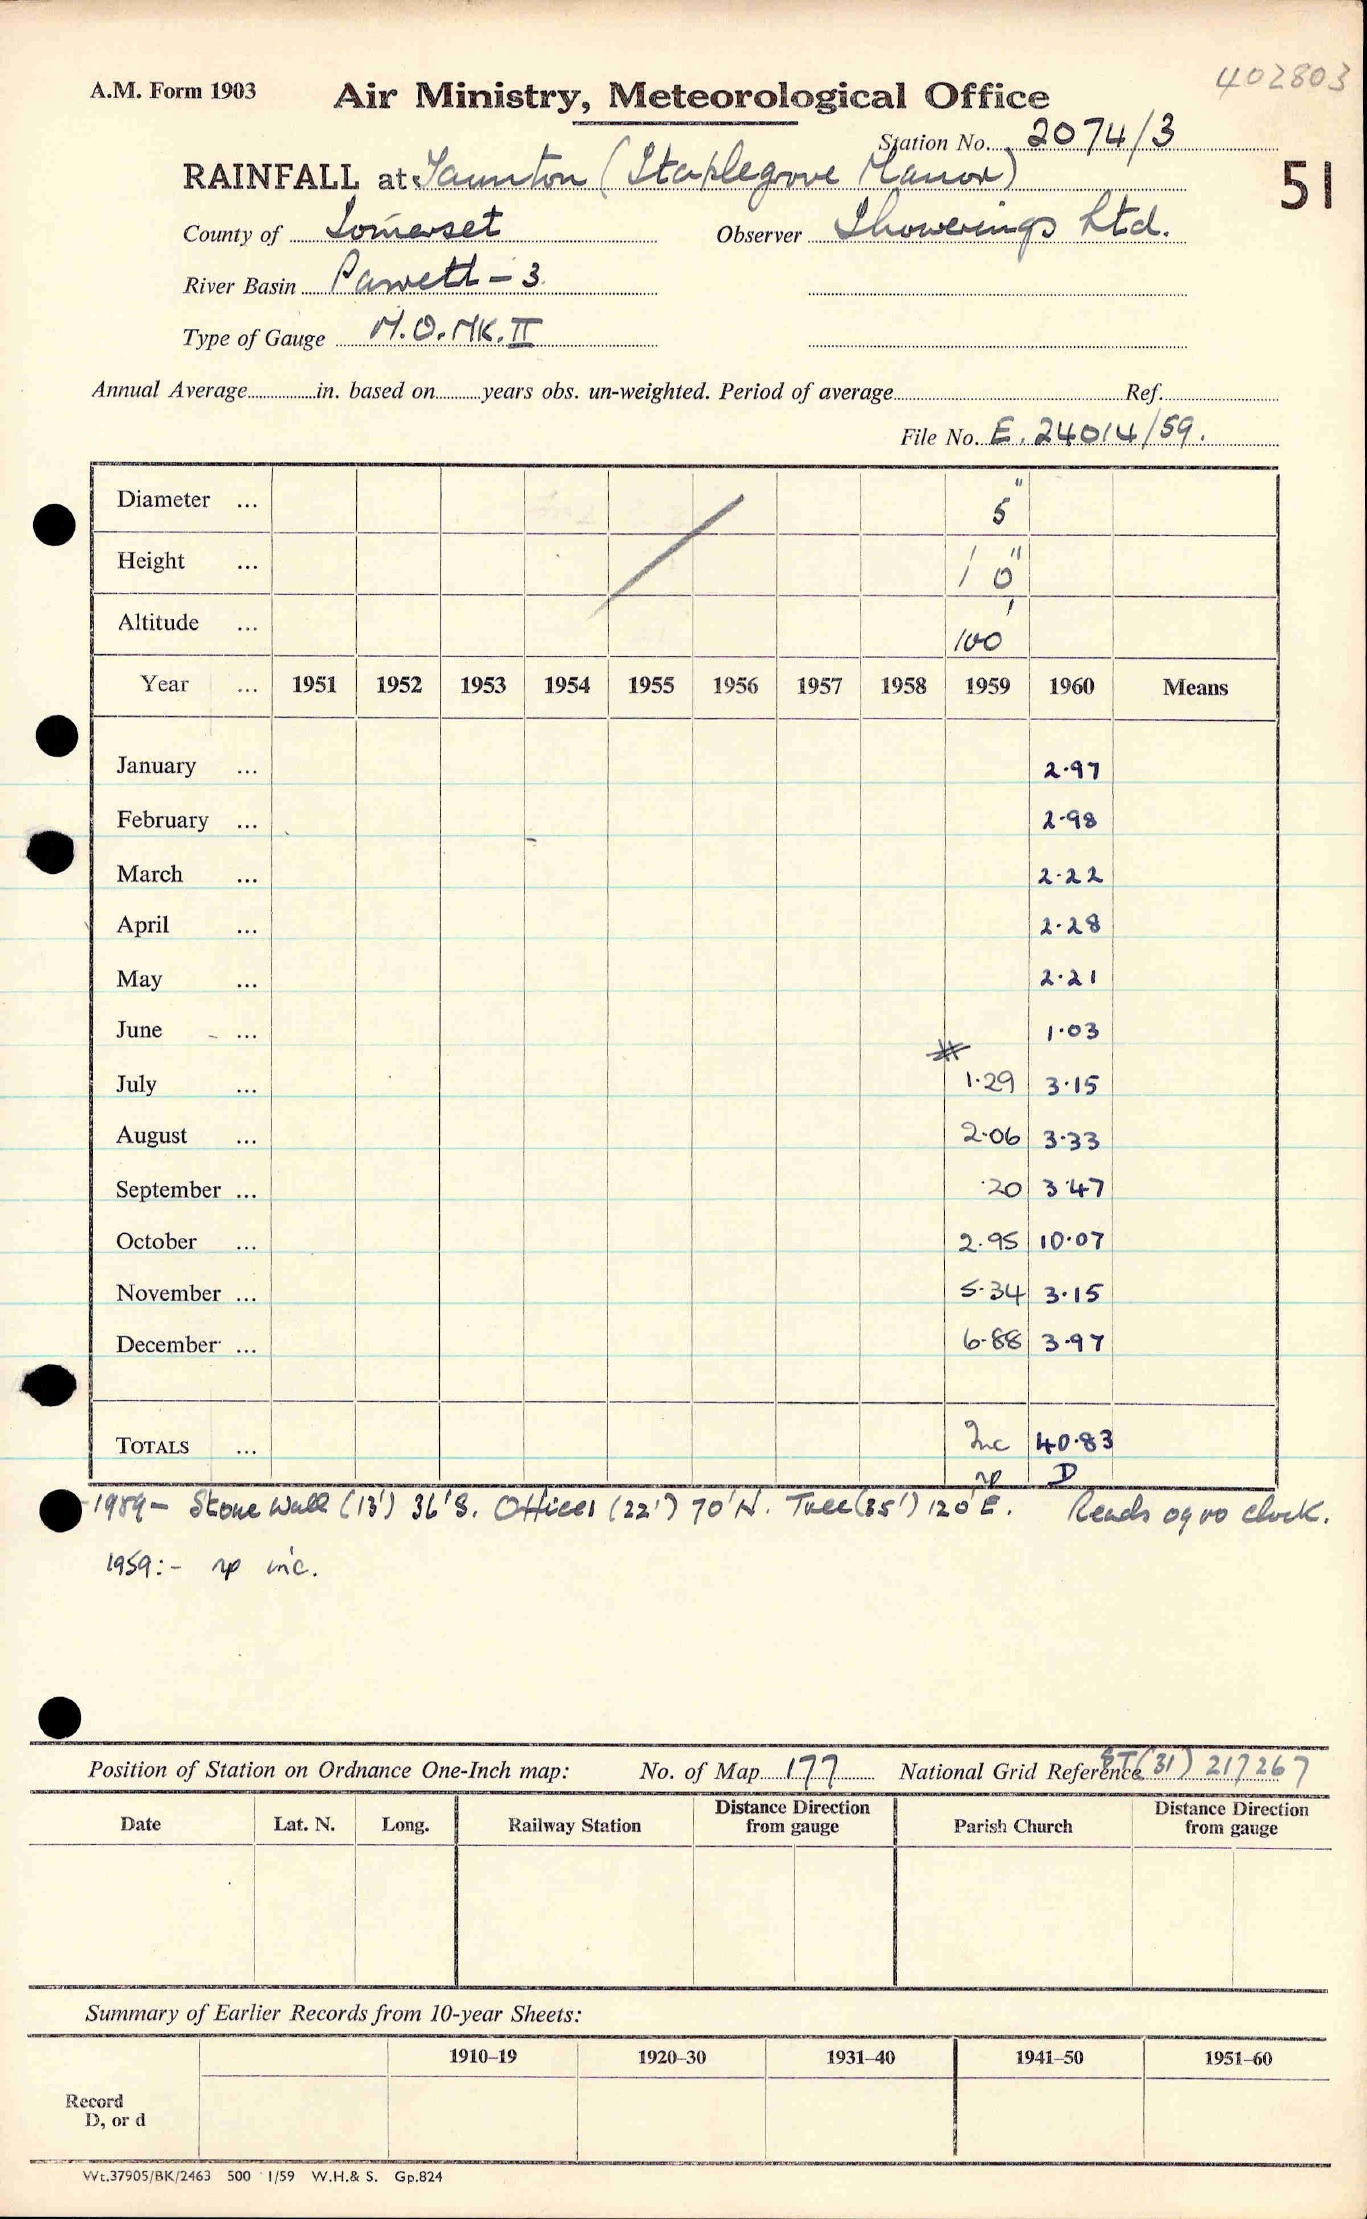 402803
A.M. Form 1903 Air Ministry, Meteorological Office
Station No. 2074/3
RAINFALL at Taunton (Staplegrove Manor) 51
County of Somerset Observer Showerings Ltd.
River Basin Parrett - 3
Type of Gauge M.O. MK. II
Annual Average in. based on years obs. un-weighted. Period of average Ref.
File No. E. 24014/59.
Diameter ... 5"
Height ... 1' 0"
Altitude ... 100'
Year ... 1951 1952 1953 1954 1955 1956 1957 1958 1959 1960 Means
January ... 2.97
February ... 2.98
March ... 2.22
April ... 2.28
May ... 2.21
June ... 1.03
July ... 1.29 3.15
August ... 2.06 3.33
September ... .20 3.47
October ... 2.95 10.07
November ... 5.34 3.15
December ... 6.88 3.97
TOTALS ... Inc 40.83
np D
1959 - Stone Wall (13') 36'S. Offices (22') 70'N. Tree (35') 120'E. Reads 0900 clock.
1959:- np inc.
Position of Station on Ordnance One-Inch map: No. of Map 177 National Grid Reference ST(31) 217267
Date Lat. N. Long. Railway Station Distance Direction from gauge Parish Church Distance Direction from gauge
Summary of Earlier Records from 10-year Sheets:
1910–19 1920–30 1931–40 1941–50 1951–60
Record
D, or d
Wt.37905/BK/2463 500 1/59 W.H.& S. Gp.824